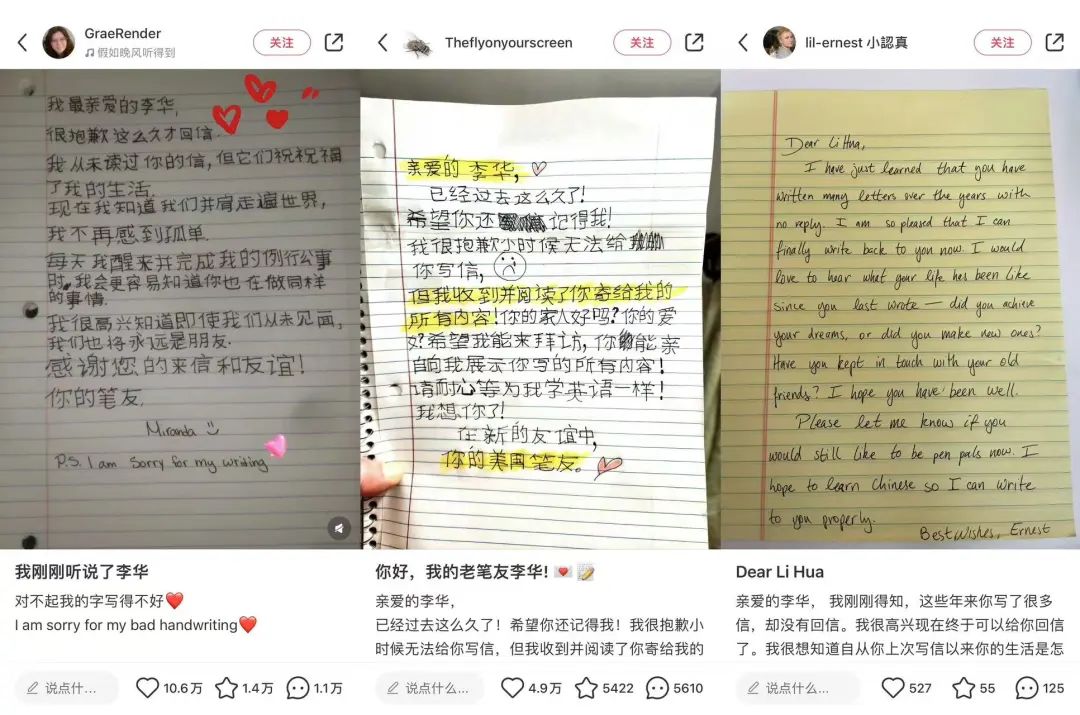 GraeRender
假如晚风听得到
关注
我最亲爱的李华,
很抱歉这么久才回信.
我从未读过你的信,但它们祝祝福
了我的生活.
现在我知道我们并肩走遍世界,
我不再感到孤单.
每天我醒来并完成我的例行公事
时,我会更容易知道你也在做同样
的事情.
我很高兴知道即使我们从未见面,
我们也将永远是朋友.
感谢您的来信和友谊!
你的笔友,
Miranda
P.S. I am sorry for my writing
我刚刚听说了李华
对不起我的字写得不好❤️
I am sorry for my bad handwriting❤️
说点什...
10.6万
1.4万
1.1万
Theflyonyourscreen
关注
亲爱的 李华,
已经过去这么久了!
希望你还记得我!
我很抱歉小时候无法给
你写信,
但我收到并阅读了你寄给我的
所有内容!你的家人好吗?你的爱
好?希望我能来拜访,你能亲
自向我展示你写的所有内容!
请耐心等为我学英语一样!
我想你了!
在新的友谊中,
你的美国笔友。
你好，我的老笔友李华! 💌📝
亲爱的李华，
已经过去这么久了！希望你还记得我！我很抱歉小
时候无法给你写信，但我收到并阅读了你寄给我的
说点什么...
4.9万
5422
5610
lil-ernest 小認真
关注
Dear Li Hua,
I have just learned that you have
written many letters over the years with
no reply. I am so pleased that I can
finally write back to you now. I would
love to hear what your life has been like
since you last wrote — did you achieve
your dreams, or did you make new ones?
Have you kept in touch with your old
friends? I hope you have been well.
Please let me know if you
would still like to be pen pals now. I
hope to learn Chinese so I can write
to you properly.
Best wishes, Ernest
Dear Li Hua
亲爱的李华， 我刚刚得知，这些年来你写了很多
信，却没有回信。我很高兴现在终于可以给你回信
了。我很想知道自从你上次写信以来你的生活是怎
说点什么...
527
55
125